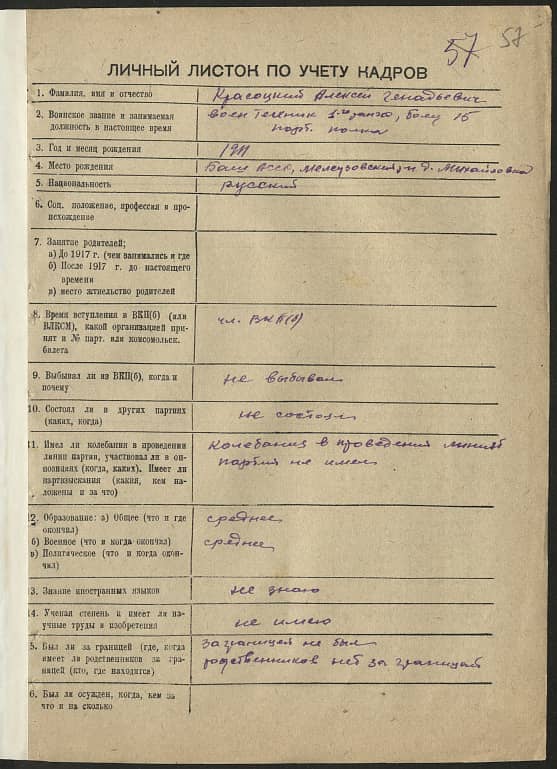 57 57
ЛИЧНЫЙ ЛИСТОК ПО УЧЕТУ КАДРОВ
1. Фамилия, имя и отчество
Красоцкий Алексей Генадьевич
2. Воинское звание и занимаемая
должность в настоящее время
воентехник 1-го ранга,
полка
3. Год и месяц рождения
1911
4. Место рождения
Баш АССР, Мелеузовский Михайловка
5. Национальность
русский
6. Соц. положение, профессия и про-
исхождение
7. Занятие родителей;
а) До 1917 г. (чем занимались и где
б) После 1917 г. до настоящего
времени
в) место жительство родителей
8. Время вступления в ВКП(б) (или
ВЛКСМ), какой организацией при-
нят и № парт. или комсомольск.
билета
чл. ВКП(б)
9. Выбывал ли из ВКП(б), когда и
почему
не выбывал
10. Состоял ли в других партиях
(каких, когда)
не состоял
11. Имел ли колебания в проведении
линии партии, участвовал ли в оп-
позициях (когда, каких). Имеет ли
партвзыскания (какия, кем на-
ложены и за что)
Колебания в проведении линии
партии не имел
2. Образование: а) Общее (что и где
окончил)
б) Военное (что и когда окончил)
в) Политическое (что и когда окон-
чил)
среднее
среднее
3. Знание иностранных языков
не знаю
4. Ученая степень и имеет ли на-
учные труды и изобретения
не имею
5. Был ли за границей (где, когда
имеет ли родственников за гра-
ницей (кто, где находятся)
заграницей не был
родственников нет за границей
6. Был ли осужден, когда, кем за
что и на сколько